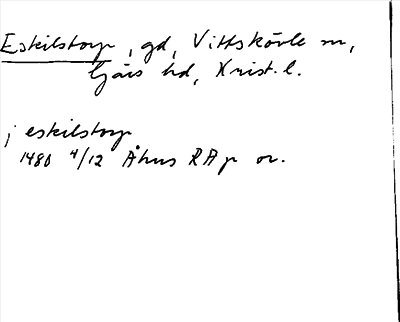 Eskilstorp, gd, Vittskövle sn,
Gärs hd, Krist. l.
j eskilstorp
1480 4/12 Åhus RAp or.